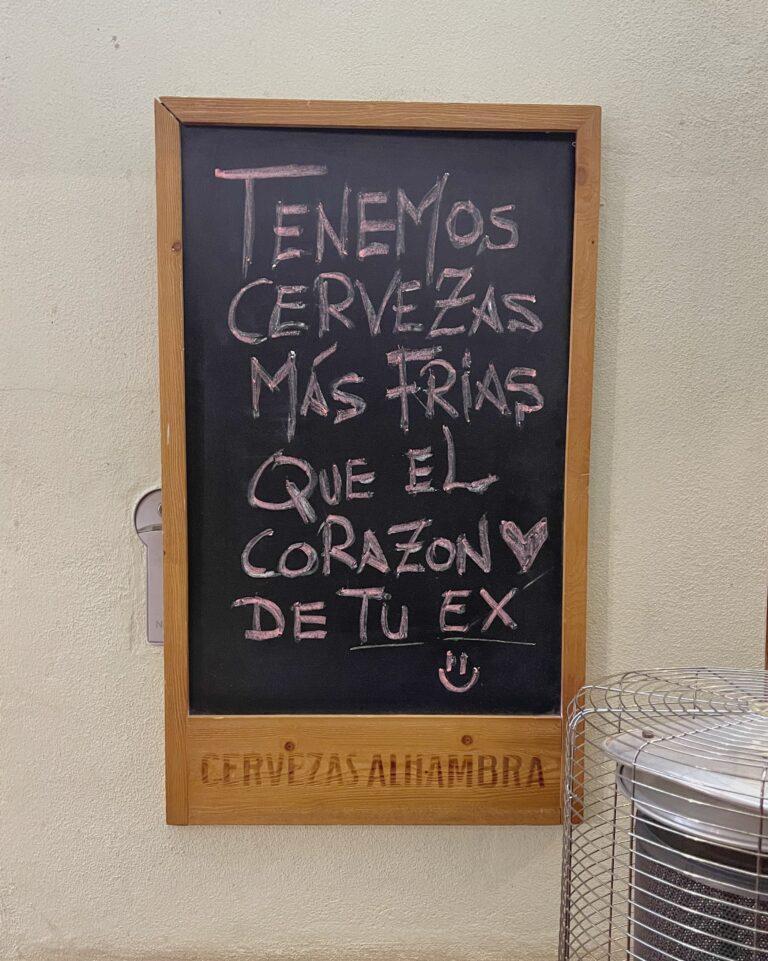 TENEMOS
CERVEZAS
MÁS FRÍAS
QUE EL
CORAZON
DE TU EX
CERVEZAS ALHAMBRA